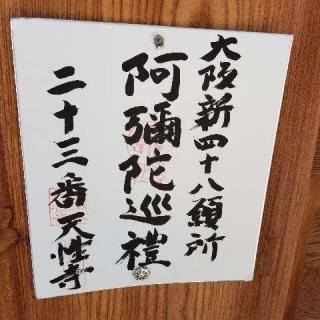 大阪新四十八願所
阿彌陀巡禮
二十三番天性寺